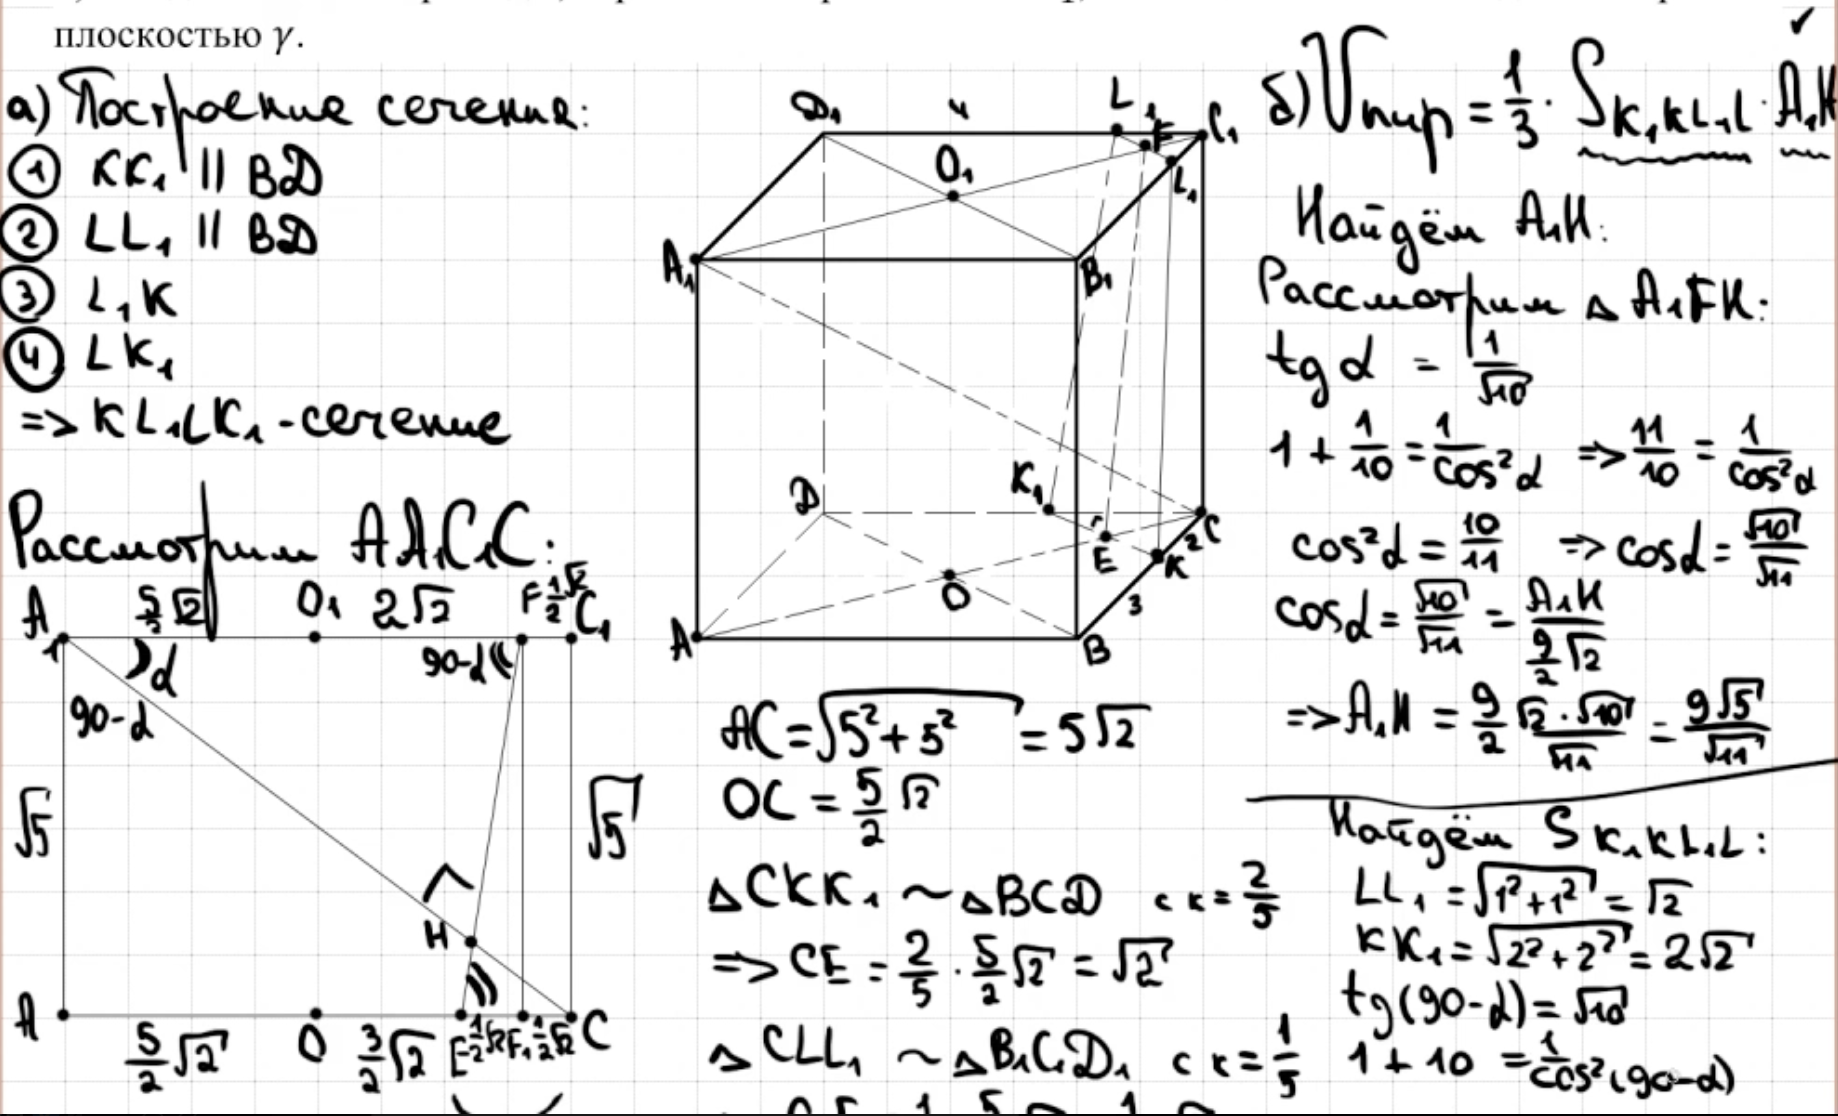 плоскостью γ.
а) Построение сечения:
① KK₁ || BD
② LL₁ || BD
③ L₁K
④ LK₁
=> KL₁LK₁ - сечение
Рассмотрим AA₁C₁C:
A₁ 5/2 √2 O₁ 2√2 F 1/2 √2 C₁
α 90-α
90-α
√5 √5
H
A 5/2 √2 O 3/2 √2 E 1/2 √2 F₁ 1/2 √2 C
D₁ 4 L 1 F C₁
O₁ L₁
A₁ B₁
D K₁ C
E K 2
O 3
A B
AC = √(5² + 5²) = 5√2
OC = 5/2 √2
△CKK₁ ~ △BCD с к = 2/5
=> CE = 2/5 · 5/2 √2 = √2
△CLL₁ ~ △B₁C₁D₁ с к = 1/5
б) Vпир = 1/3 · S K₁KL₁L · A₁H
Найдём A₁H:
Рассмотрим △A₁FH:
tg α = 1/√10
1 + 1/10 = 1/cos²α => 11/10 = 1/cos²α
cos²α = 10/11 => cosα = √10/√11
cosα = √10/√11 = A₁H/(9/2 √2)
=> A₁H = 9/2 √2·√10/√11 = 9√5/√11
Найдём S K₁KL₁L:
LL₁ = √(1² + 1²) = √2
KK₁ = √(2² + 2²) = 2√2
tg(90-α) = √10
1 + 10 = 1/cos²(90-α)